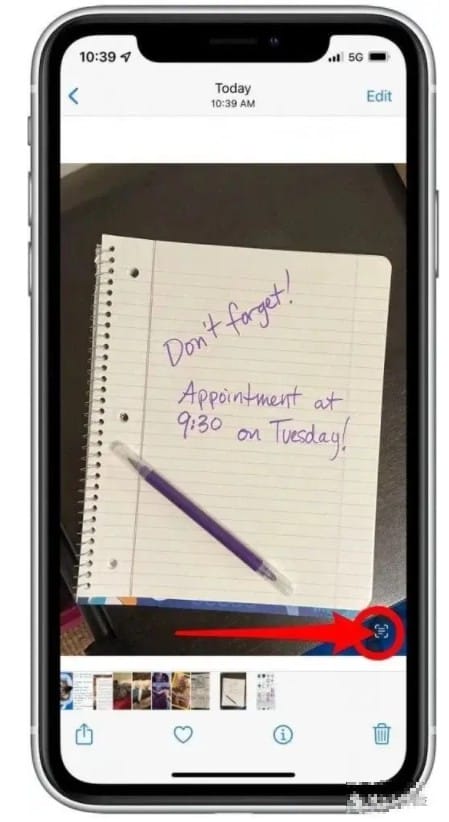 10:39
5G
Today
10:39 AM
Edit
Don't forget!
Appointment at
9:30 on Tuesday!